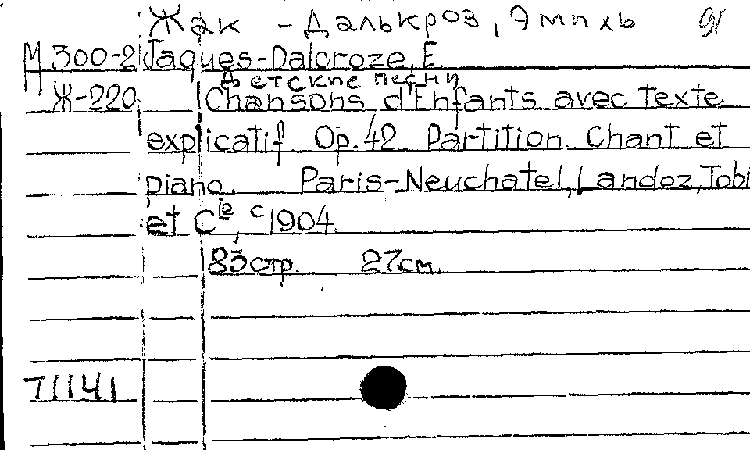 Жак - Далькроз, Эмиль
М 300-2 Jaques-Dalcroze, E.
Детские песни
Ж-220 Chansons d'Enfants avec texte
explicatif. Op. 42. Partition. Chant et
piano. Paris-Neuchatel, Landoz, Tobi
et Cie, c1904.
83 стр. 27 см.
71141